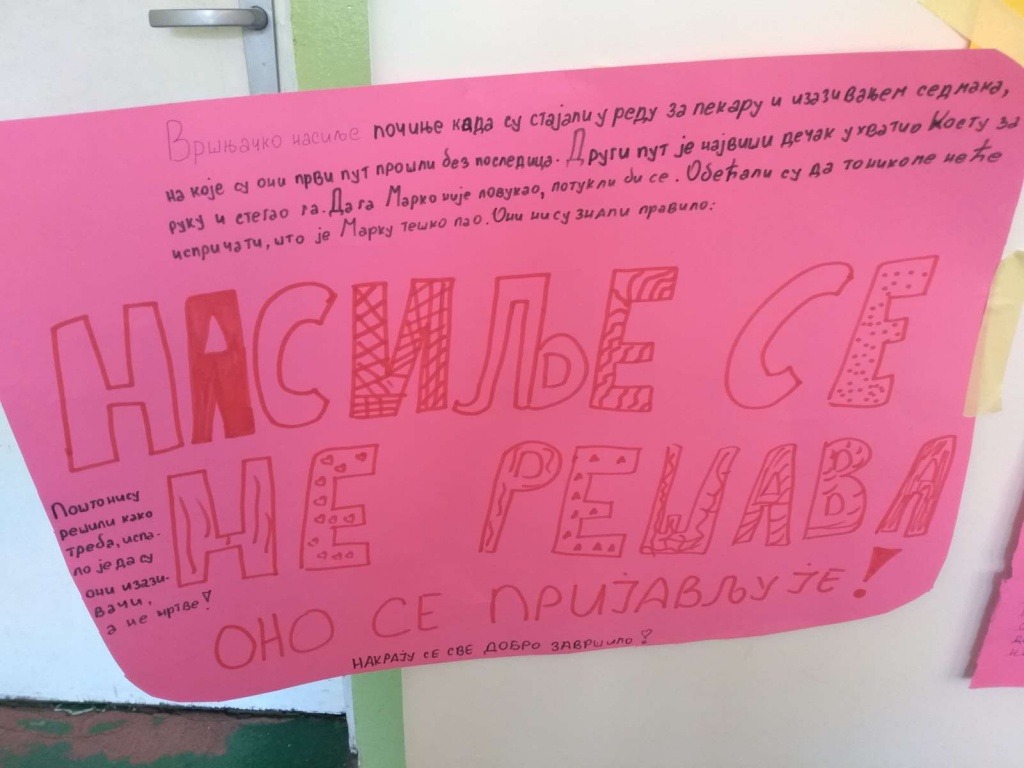 Вршњачко насиље почиње када су стајали у реду за пекару и изазивањем седмака,
на које су они први пут прошли без последица. Други пут је највиши дечак ухватио Косту за
руку и стегао га. Да га Марко није повукао, потукли би се. Обећали су да то николе неће
испричати, што је Марку тешко пао. Они нису знали правило:
НАСИЉЕ СЕ
НЕ РЕШАВА
ОНО СЕ ПРИЈАВЉУЈЕ!
Пошто нису
решили како
треба, испа-
ло је да су
они изази-
вачи,
а не жртве!
НАКРАЈУ СЕ СВЕ ДОБРО ЗАВРШИЛО!